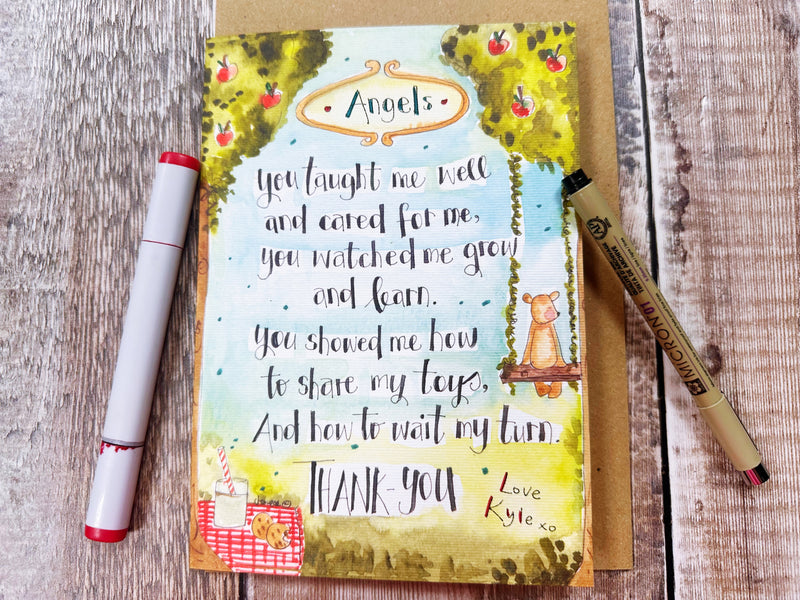 Angels
You taught me well
and cared for me,
you watched me grow
and learn.
You showed me how
to share my toys,
And how to wait my turn.
THANK-YOU
Love
Kyle xo
MICRON 01